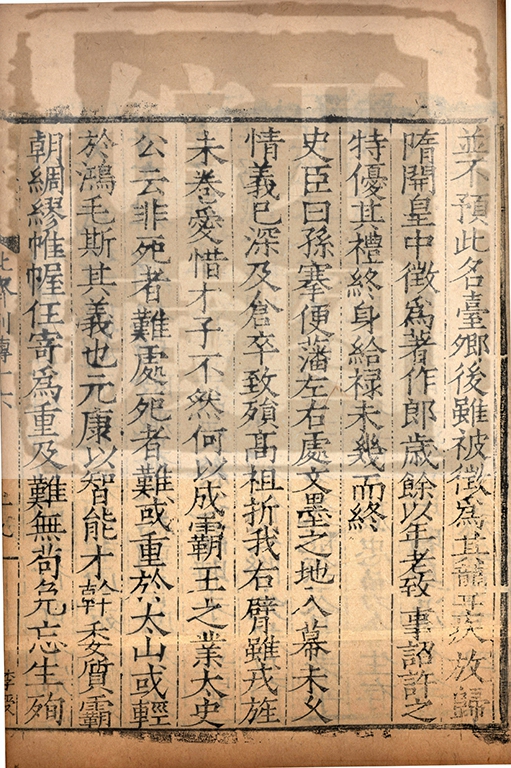 並不預此名臺卿後雖被徵為其聾疾放歸
隋開皇中徵為著作郎歲餘以年老致事詔許之
特優其禮終身給祿未幾而終
史臣曰孫搴便藩左右處文墨之地入幕未久
情義已深及倉卒致殞高祖折我右臂雖戎旌
未卷愛惜才子不然何以成霸王之業太史
公云非死者難處死者難或重於太山或輕
於鴻毛斯其義也元康以智能才幹委質霸
朝綢繆帷幄任寄為重及難無苟免忘生殉
列傳十六